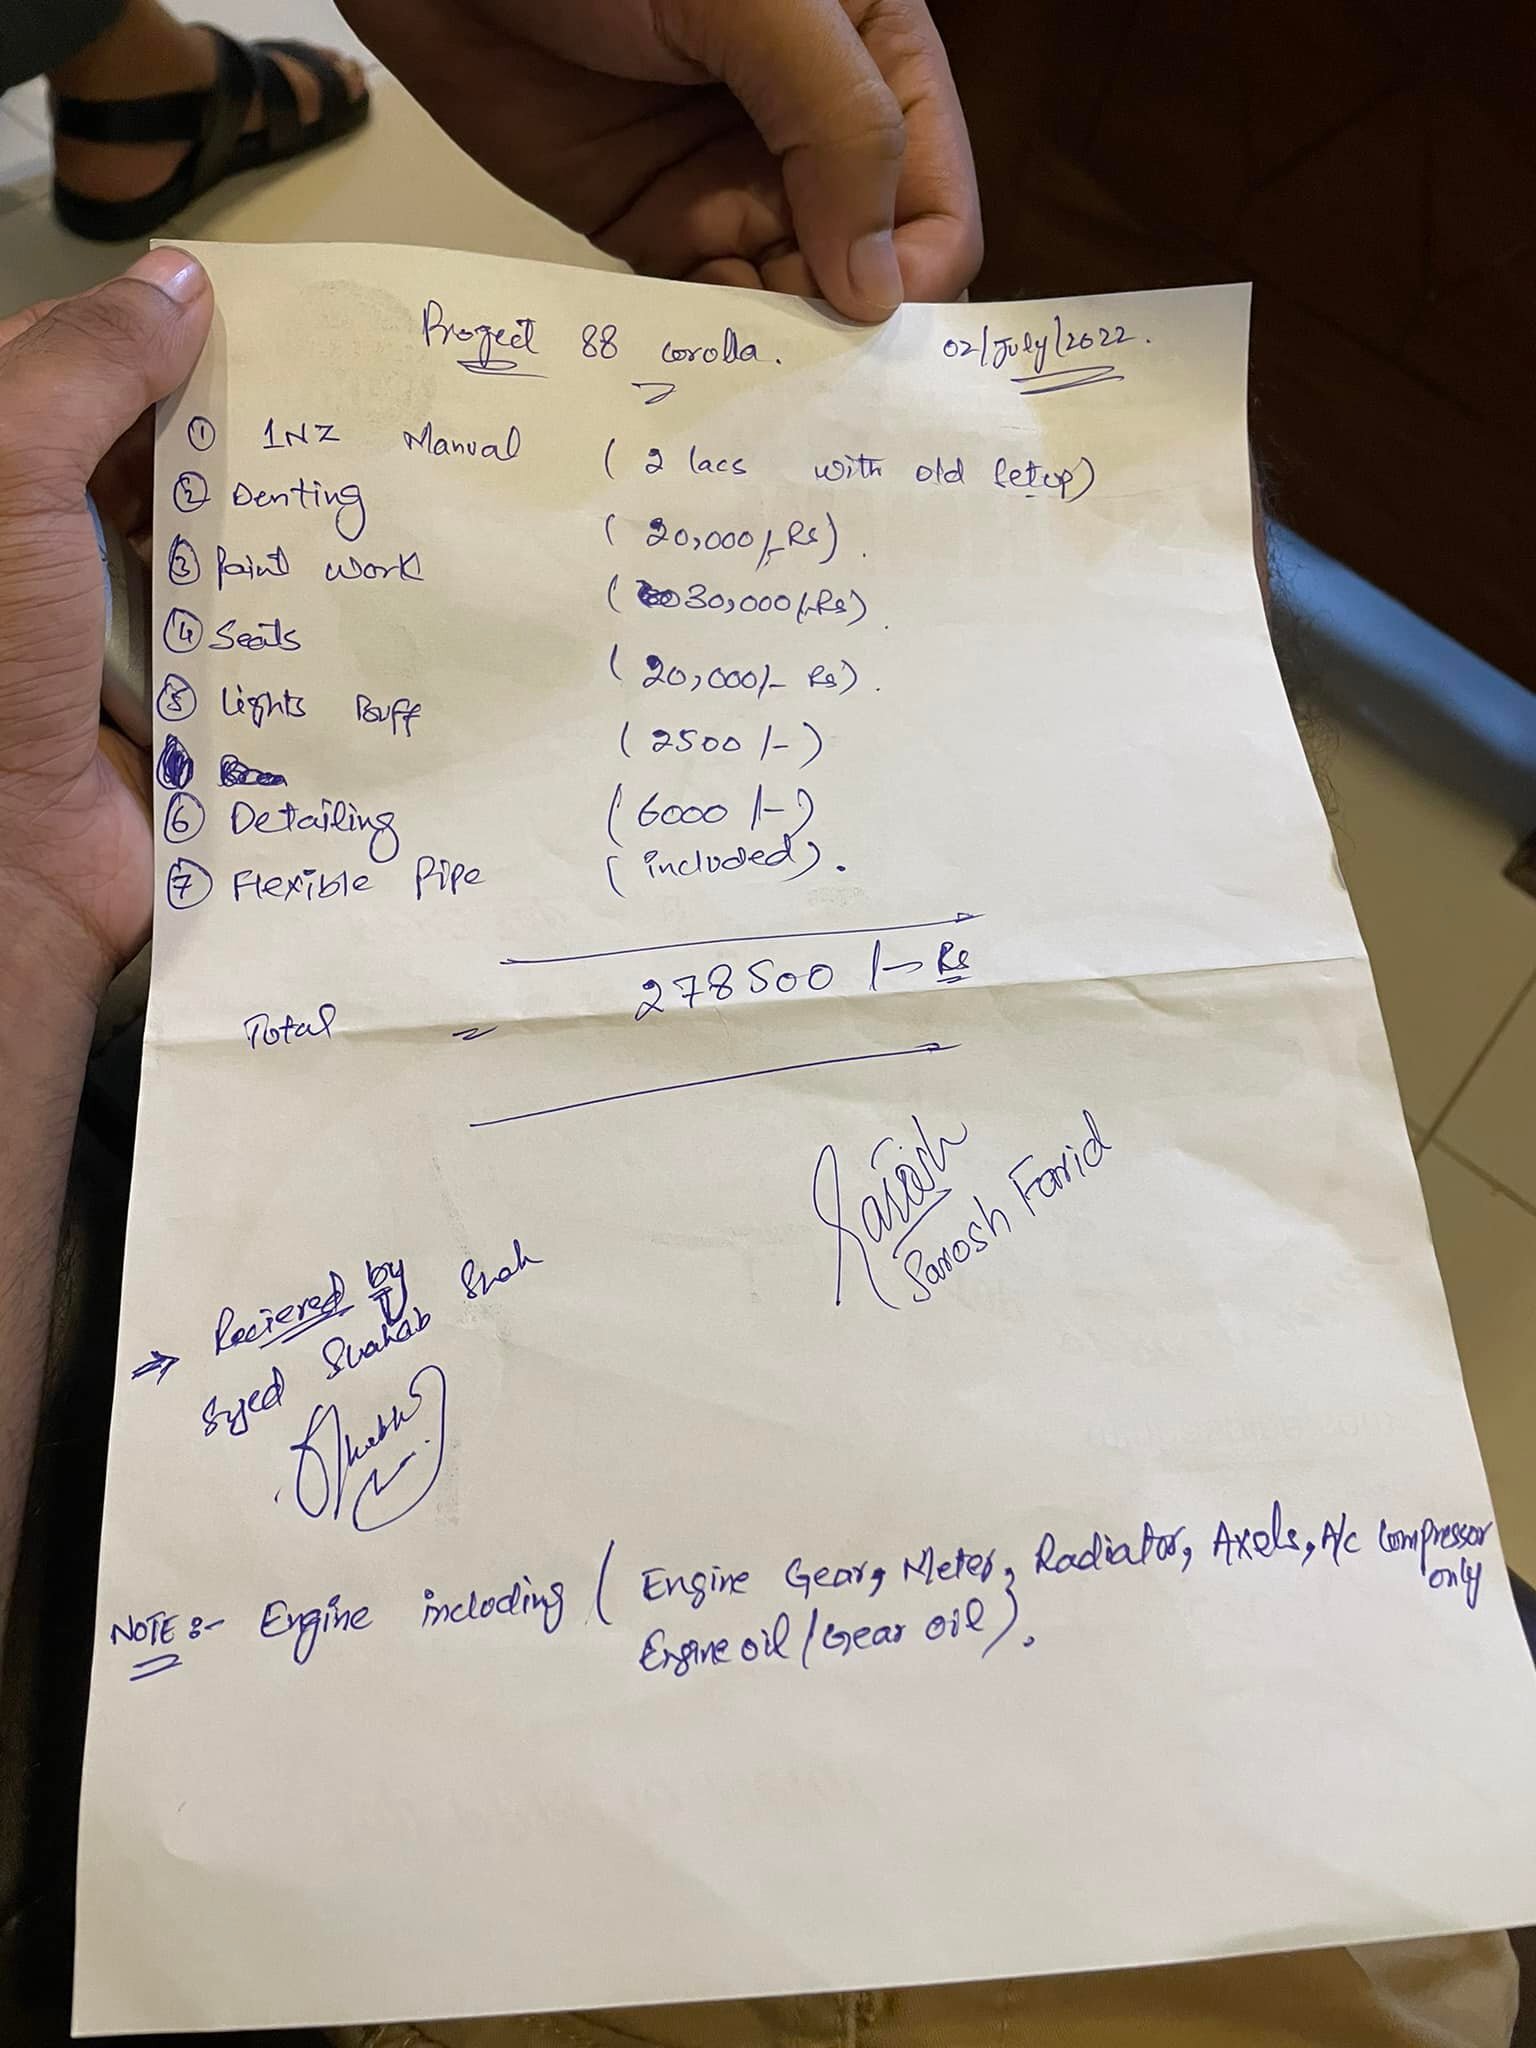 Project 88 corolla. 02/July/2022.
① 1NZ Manual ( 2 lacs with old setup)
② Denting ( 20,000/-Rs).
③ Paint work ( 30,000/-Rs).
④ Seats ( 20,000/- Rs).
⑤ Lights Buff ( 2500 /-)
⑥ Detailing ( 6000 /-)
⑦ Flexible Pipe ( included).
Total = 278500 /- Rs
Sarosh
Sarosh Farid
⇒ Recieved by
Syed Shahab Shah
NOTE :- Engine including ( Engine Gear, Meter, Radiator, Axels, A/c Compressor only
Engine oil / Gear oil ).